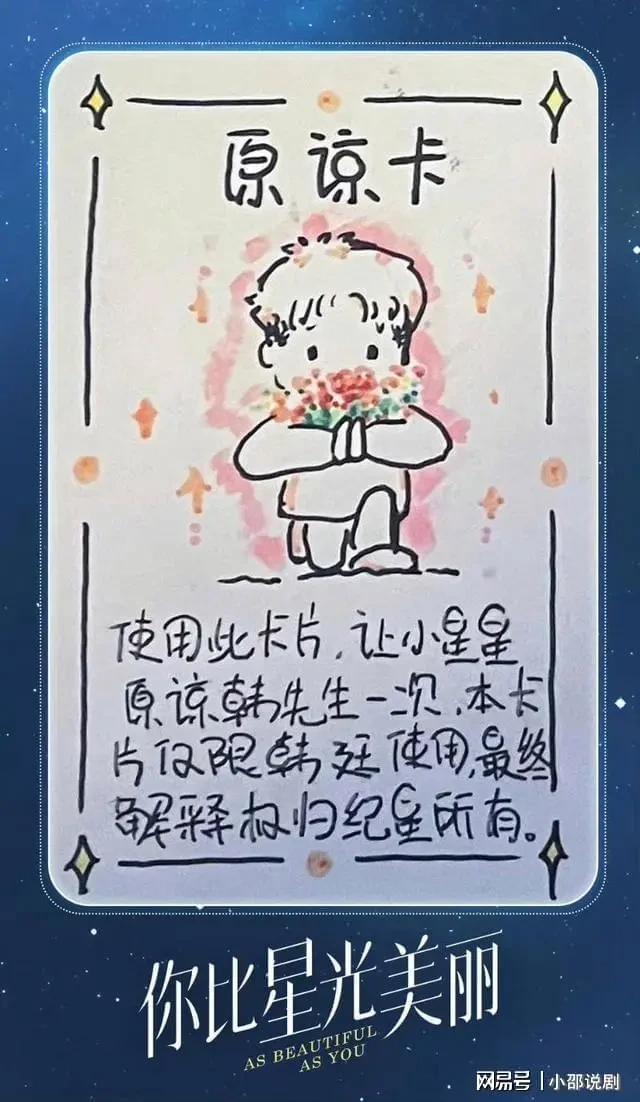 原谅卡
使用此卡片,让小星星
原谅韩先生一次,本卡
片仅限韩廷使用,最终
解释权归纪星所有。
你比星光美丽
AS BEAUTIFUL
AS YOU
网易号 | 小邵说剧